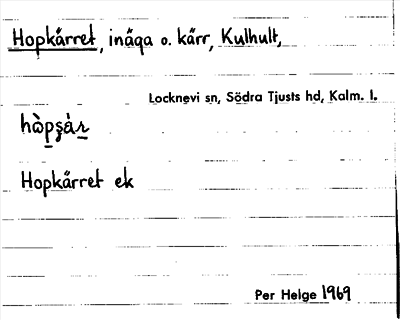 Hopkärret, inäga o. kärr, Kulhult,
Locknevi sn, Södra Tjusts hd, Kalm. l.
Hopkärret ek
Per Helge 1969